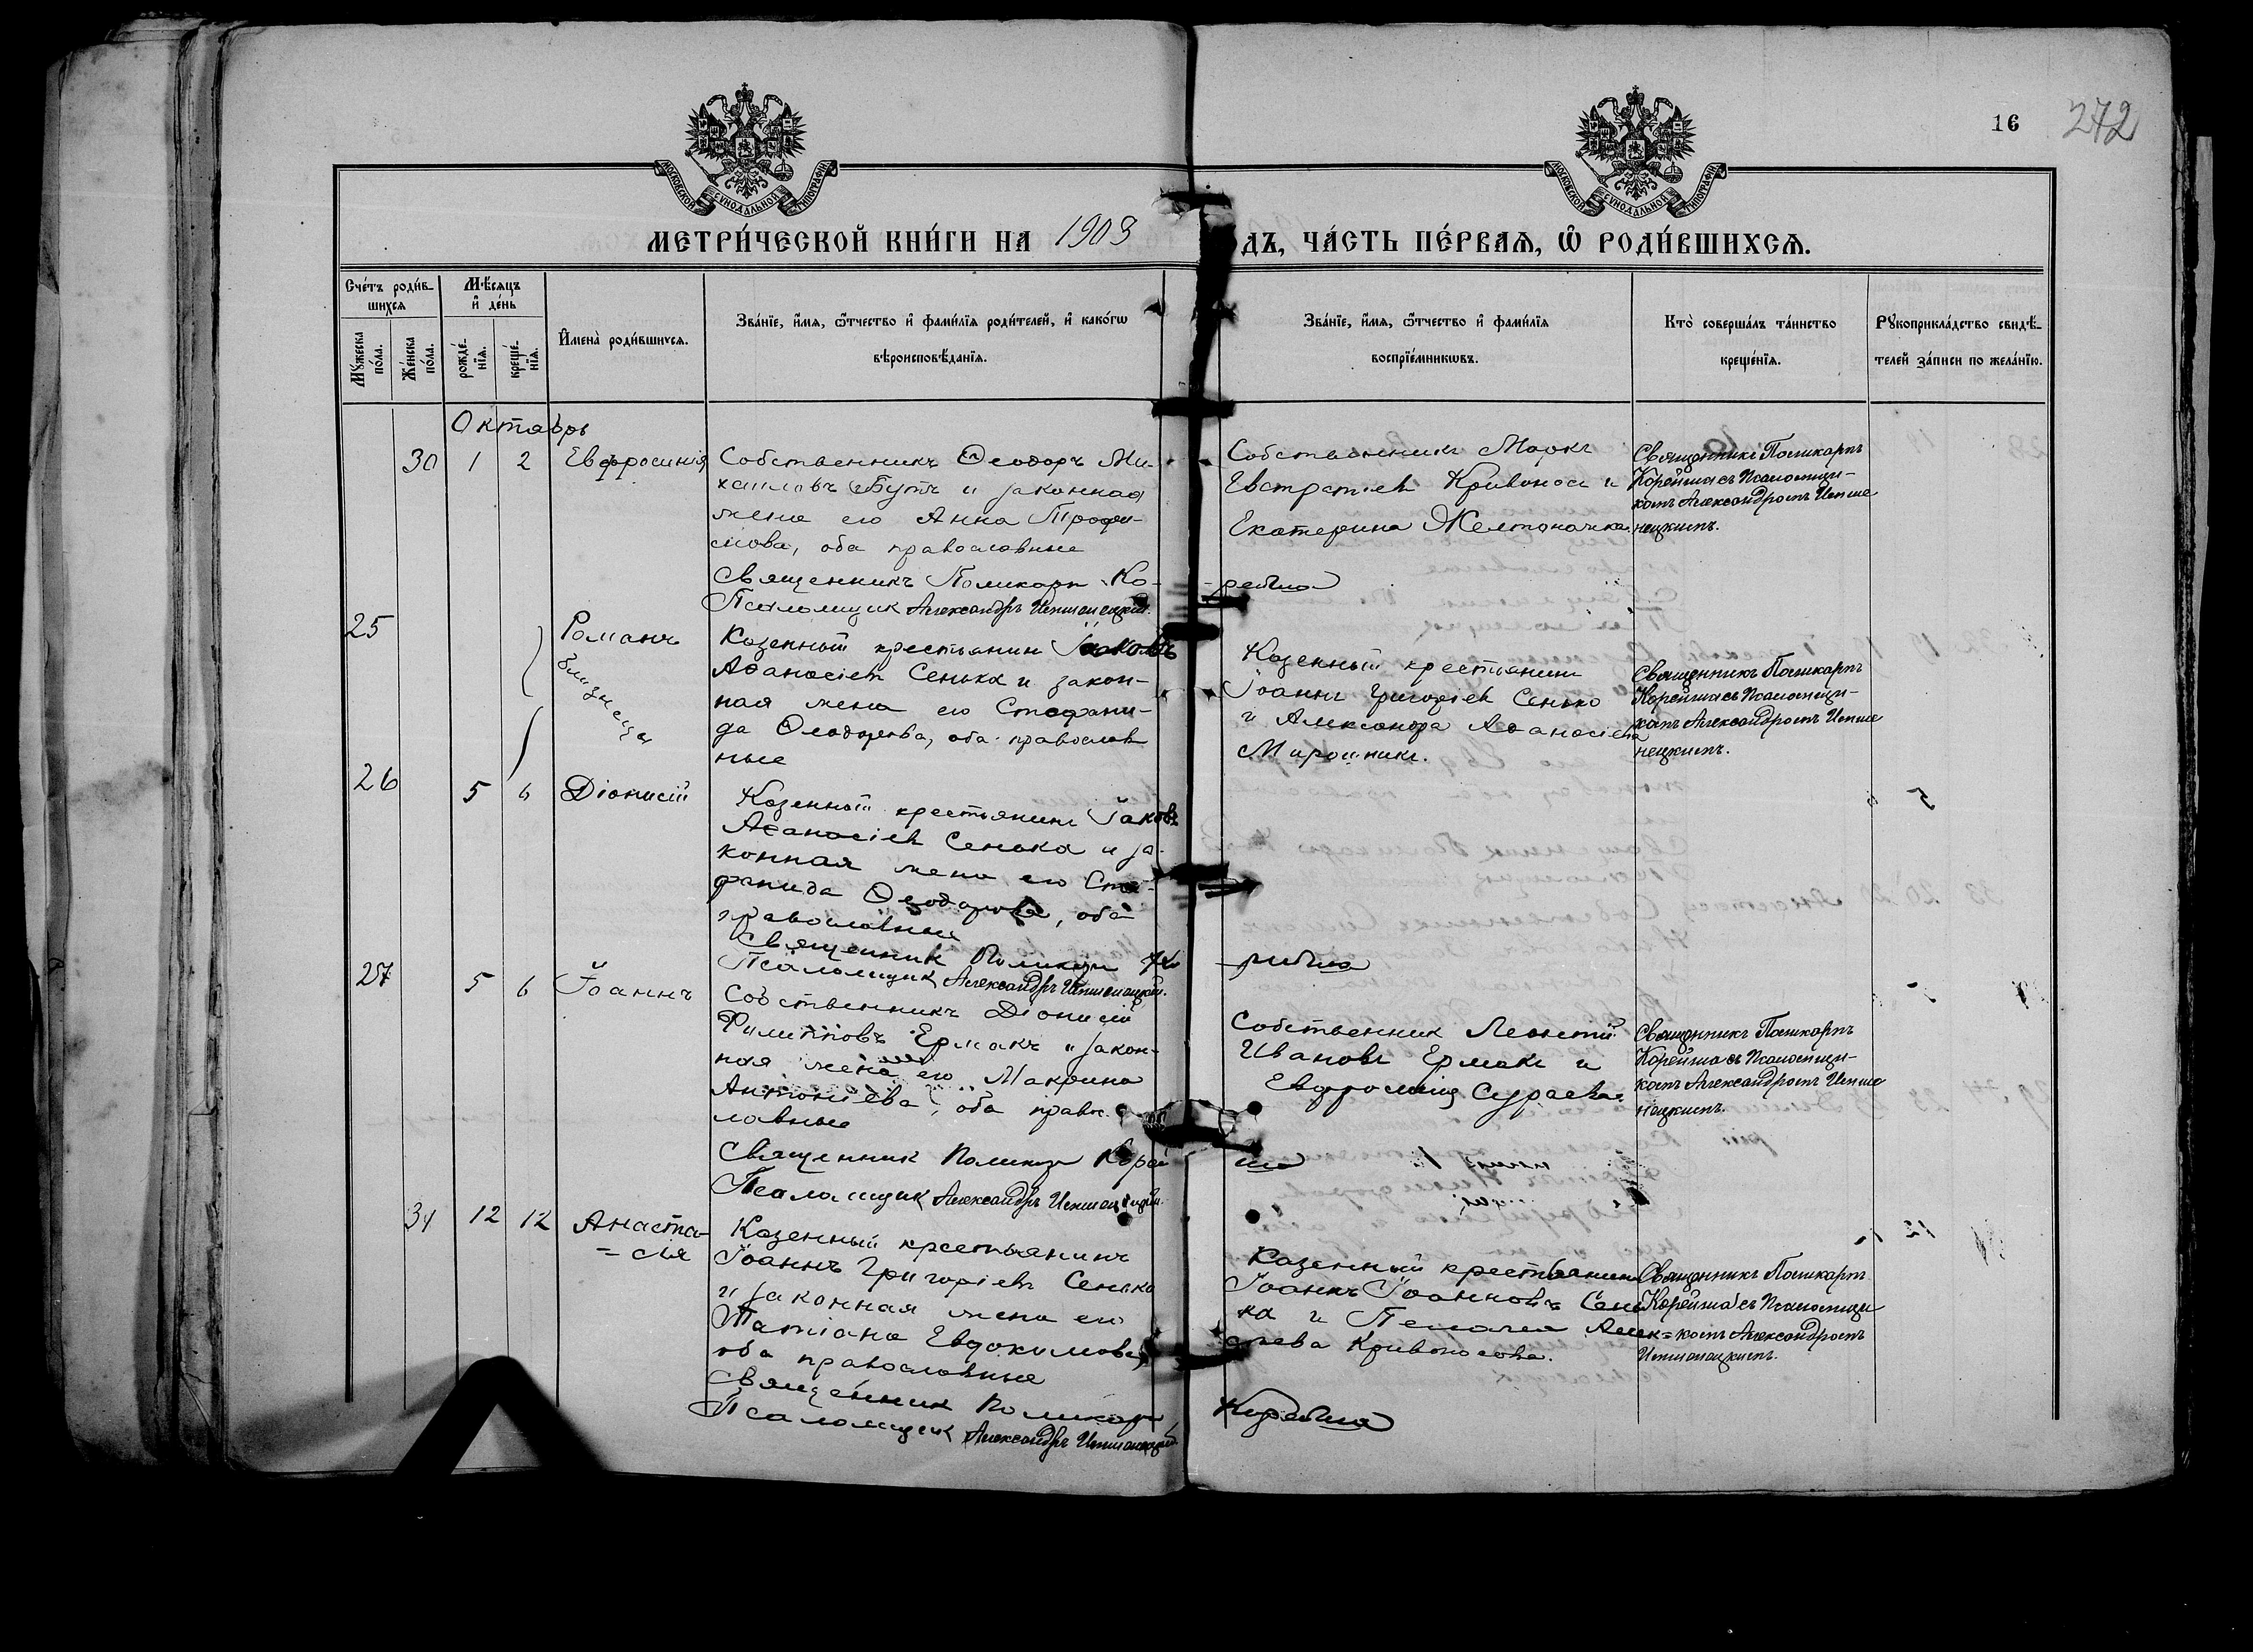 16
272
МОСКОВСКОЙ СУНОДАЛЬНОЙ ТИПОГРАФІИ
МОСКОВСКОЙ СУНОДАЛЬНОЙ ТИПОГРАФІИ
МЕТРИ́ЧЕСКОЙ КНИ́ГИ НА 1903
ДЪ, ЧА́СТЬ ПЕ́РВАѦ, Ѡ РОДИ́ВШИХСѦ.
Сче́тъ роди́в-
шихсѧ
Мꙋ́жеска по́ла.
Же́нска по́ла.
Мѣ́сѧцъ
и҆ де́нь
рожде́-
нїѧ.
креще́-
нїѧ.
И҆мена̀ роди́вшихсѧ.
Зва́нїе, и҆́мѧ, ѻ҆́тчество и҆ фами́лїѧ роди́телей, и҆ како́гѡ
вѣроисповѣ́данїѧ.
Зва́нїе, и҆́мѧ, ѻ҆́тчество и҆ фами́лїѧ
воспрїе́мникѡвъ.
Кто̀ соверша́лъ та́инство
креще́нїѧ.
Рꙋкоприкла́дство свидѣ́-
телей за́писи по жела́нїю.
Октябрь
30 1 2 Евфросинія
Собственникъ Ѳеодоръ Ми-
хаиловъ Бутъ и законная
жена его Анна Трофи-
мова, оба православные
Собственникъ Маркъ
Евстратіевъ Кривоносъ и
Екатерина
Священникъ Поликарпъ
Корейша съ Псаломщи-
комъ Александромъ
Священникъ Поликарпъ Ко-
рейша
Псаломщик Александръ
25 Романъ
близнецы
Казенный крестьянин Іаковъ
Аѳанасіевъ Сенька и закон-
ная жена его Стефани-
да Ѳеодорова, оба православ
ные
Казенный крестьянин
Іоаннъ Григоріевъ Сенько
и Александра Аѳанасіева
Мирошник.
Священникъ Поликарпъ
Корейша съ Псаломщи-
комъ Александромъ
26 5 6 Діонисій
Казенный крестьянинъ Іаковъ
Аѳанасіевъ Сенька и за-
конная жена его Сте-
фанида Ѳеодорова, оба
православные
Священник Поликарп Ко
рейша
Псаломщик Александръ
27 5 6 Іоаннъ
Собственникъ Діонисій
Филипповъ Ермакъ и закон-
ная жена его Макрина
Антоніева, оба правос-
лавные
Собственник Леонтій
Ивановъ Ермакъ и
Евфросинія Сураева
Священникъ Поликарпъ
Корейша съ Псаломщи-
комъ Александромъ
Священник Поликарп Корей
ша
Псаломщик Александръ
31 12 12 Анаста-
=сія
Казенный крестьянинъ
Іоаннъ Григоріевъ Сенько
и законная жена его
Татіана Евдокимова,
оба православные
Казенный крестьянинъ
Іоаннъ Іоанновъ Сень
ка и Пелагея Алек=
сеева Кривоносова.
Священникъ Поликарпъ
Корейша съ Псаломщи
комъ Александромъ
Священник Поликарп
Корейша
Псаломщик Александръ